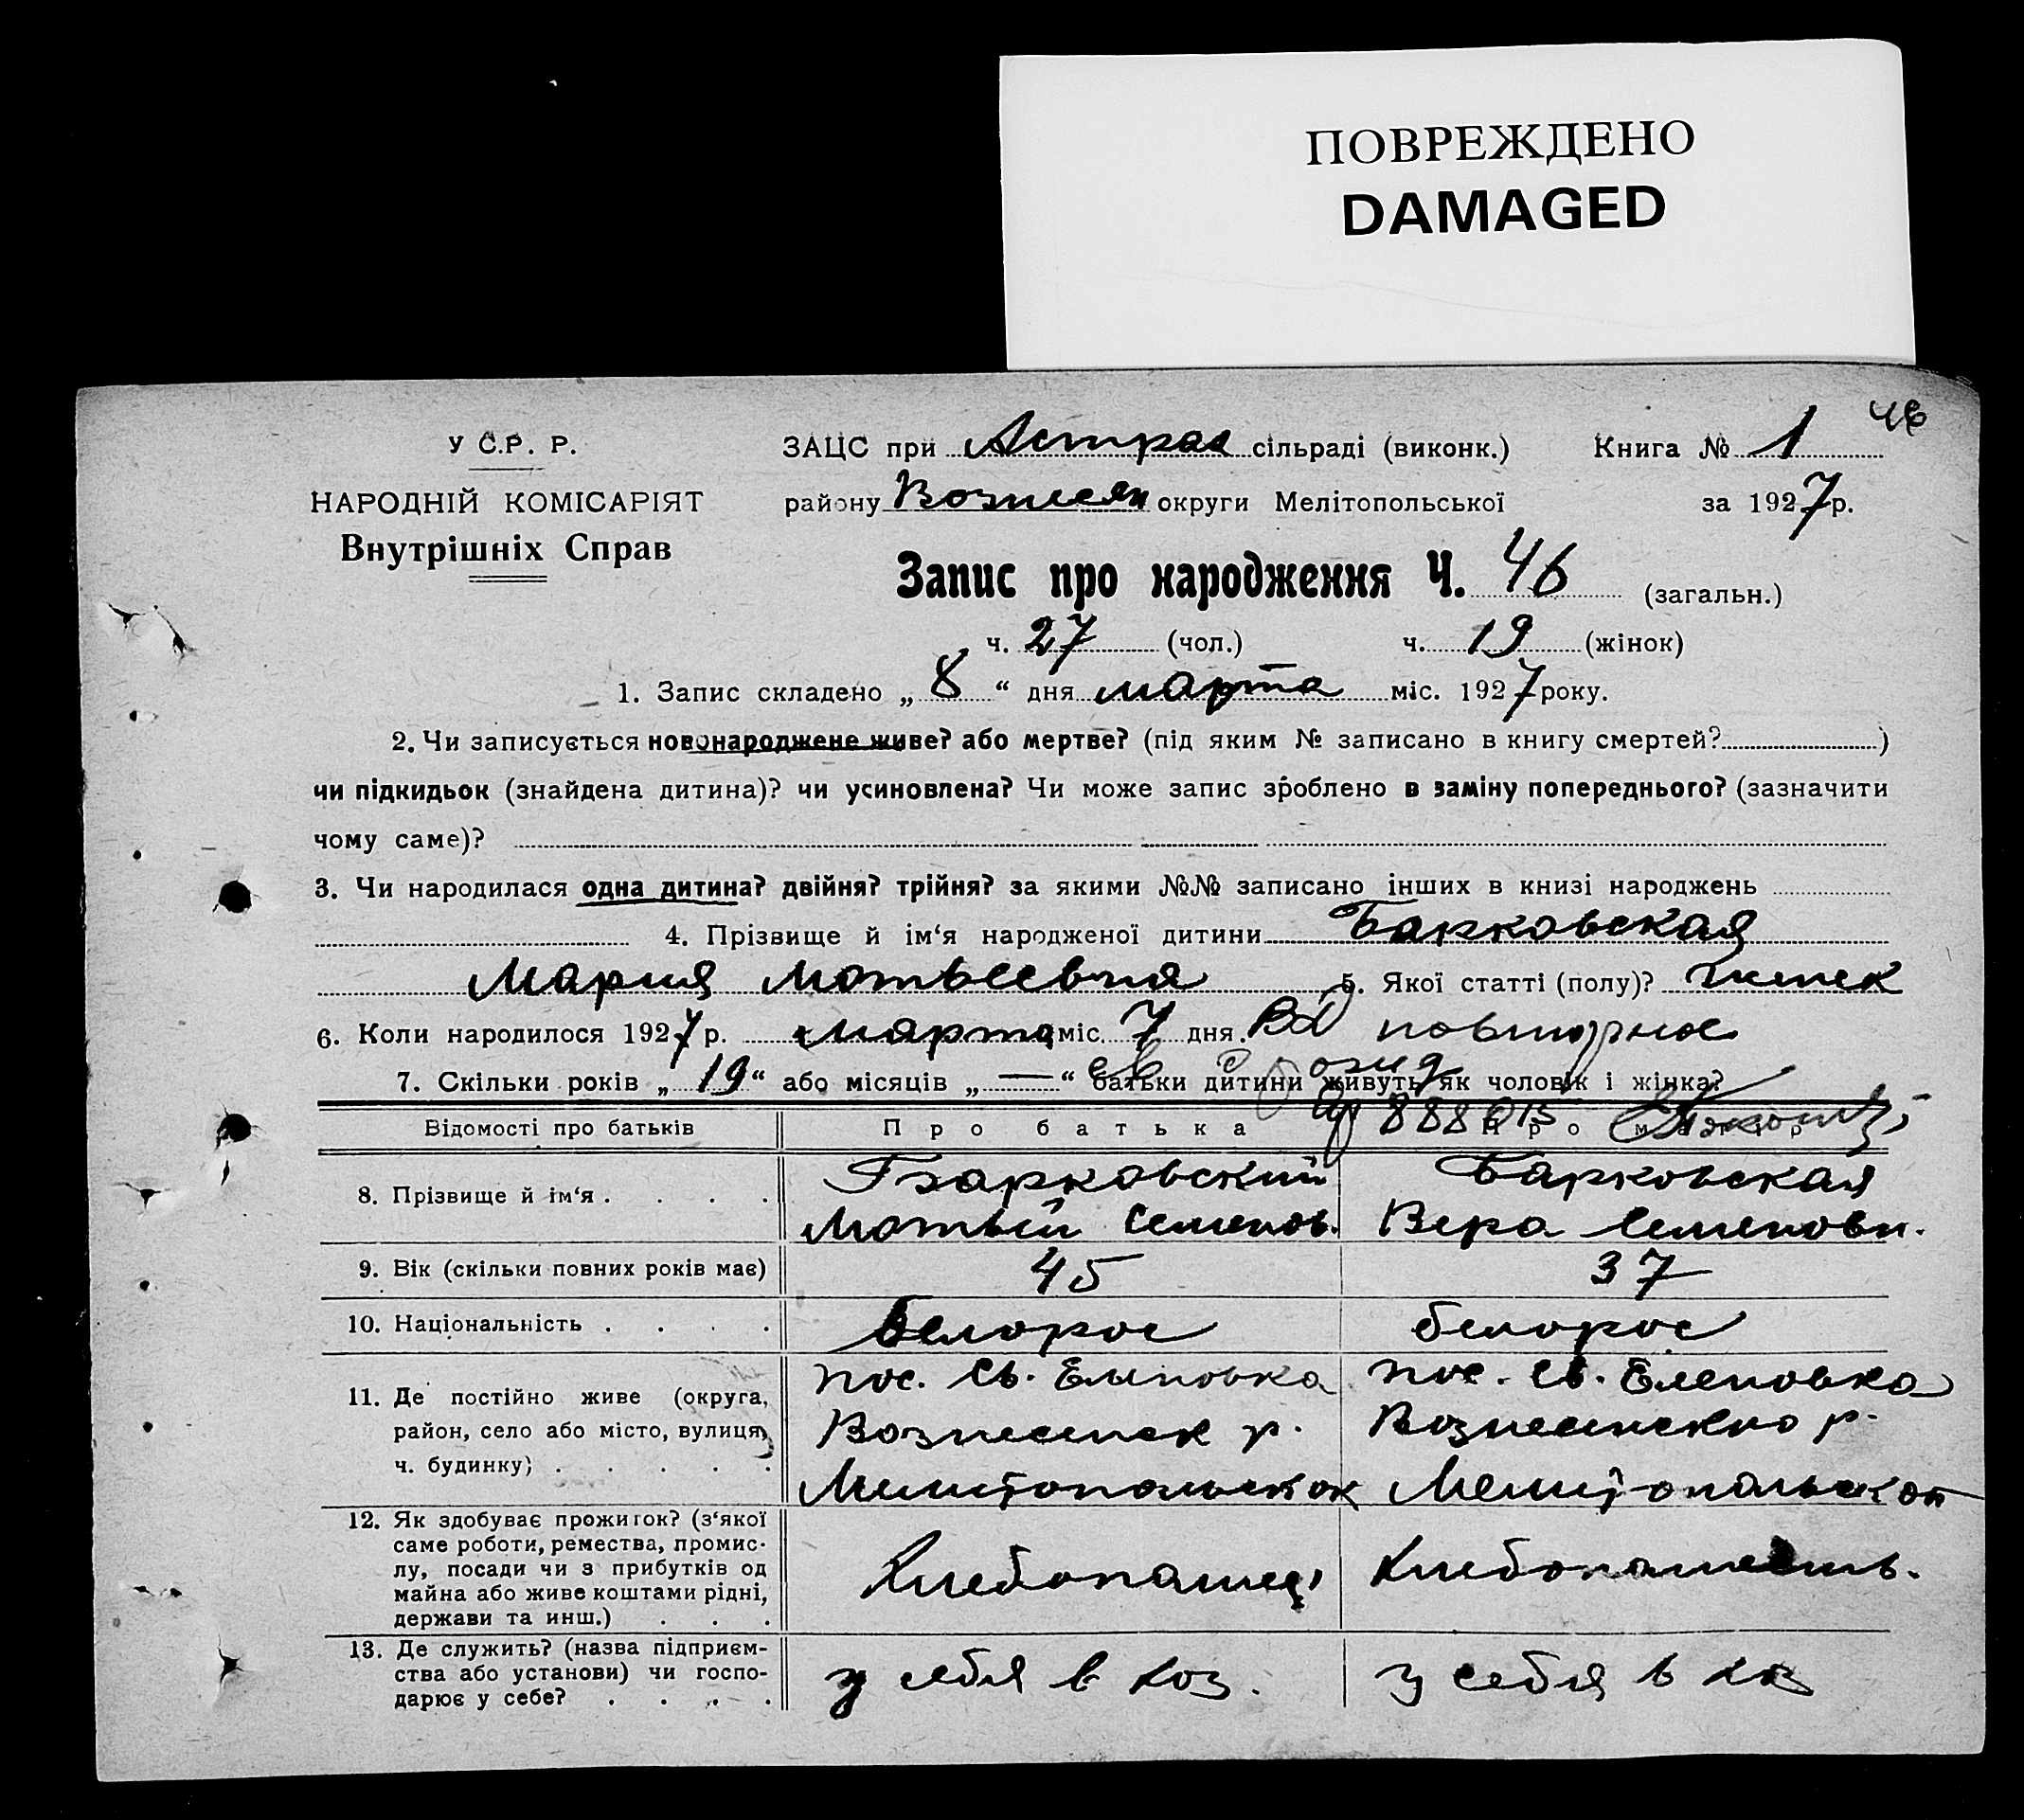 ПОВРЕЖДЕНО
DAMAGED
46
У С.Р. Р. ЗАЦС при Астрах сільраді (виконк.) Книга № 1
НАРОДНІЙ КОМІСАРІЯТ району Вознесен округи Мелітопольської за 1927 р.
Внутрішніх Справ
Запис про народження Ч. 46 (загальн.)
ч. 27 (чол.) ч. 19 (жінок)
1. Запис складено „ 8 “ дня марта міс. 1927 року.
2. Чи записується новонароджене живе? або мертве? (під яким № записано в книгу смертей? )
чи підкидьок (знайдена дитина)? чи усиновлена? Чи може запис зроблено в заміну попереднього? (зазначити
чому саме)?
3. Чи народилася одна дитина? двійня? трійня? за якими №№ записано інших в книзі народжень
4. Прізвище й ім‘я народженої дитини Барковская
Мария Матвеевна 5. Якої статті (полу)? женск
6. Коли народилося 1927 р. марта міс. 7 дня. Вд повторное
7. Скільки років „ 19 “ або місяців „ — “ батьки дитини живуть як чоловік і жінка?
Відомості про батьків Про батька Про матір
8. Прізвище й ім‘я . . . . Барковский Барковская
Матвей Семенов. Вера Семеновн.
9. Вік (скільки повних років має) 45 37
10. Національність . . . . Белорос белорос
11. Де постійно живе (округа, пос. Св. Еленовка пос. Св. Еленовка
район, село або місто, вулиця, Вознесенск р. Вознесенского р.
ч. будинку) . . . . . Мелитопольск ок Мелитопольск ок
12. Як здобуває прожиток? (з‘якої
саме роботи, ремества, промис-
лу, посади чи з прибутків од
майна або живе коштами рідні, Хлебопашец Хлебопашеств.
держави та инш.) . . .
13. Де служить? (назва підприєм-
ства або установи) чи госпо- у себя в хоз. у себя в хоз
дарює у себе? . . . .